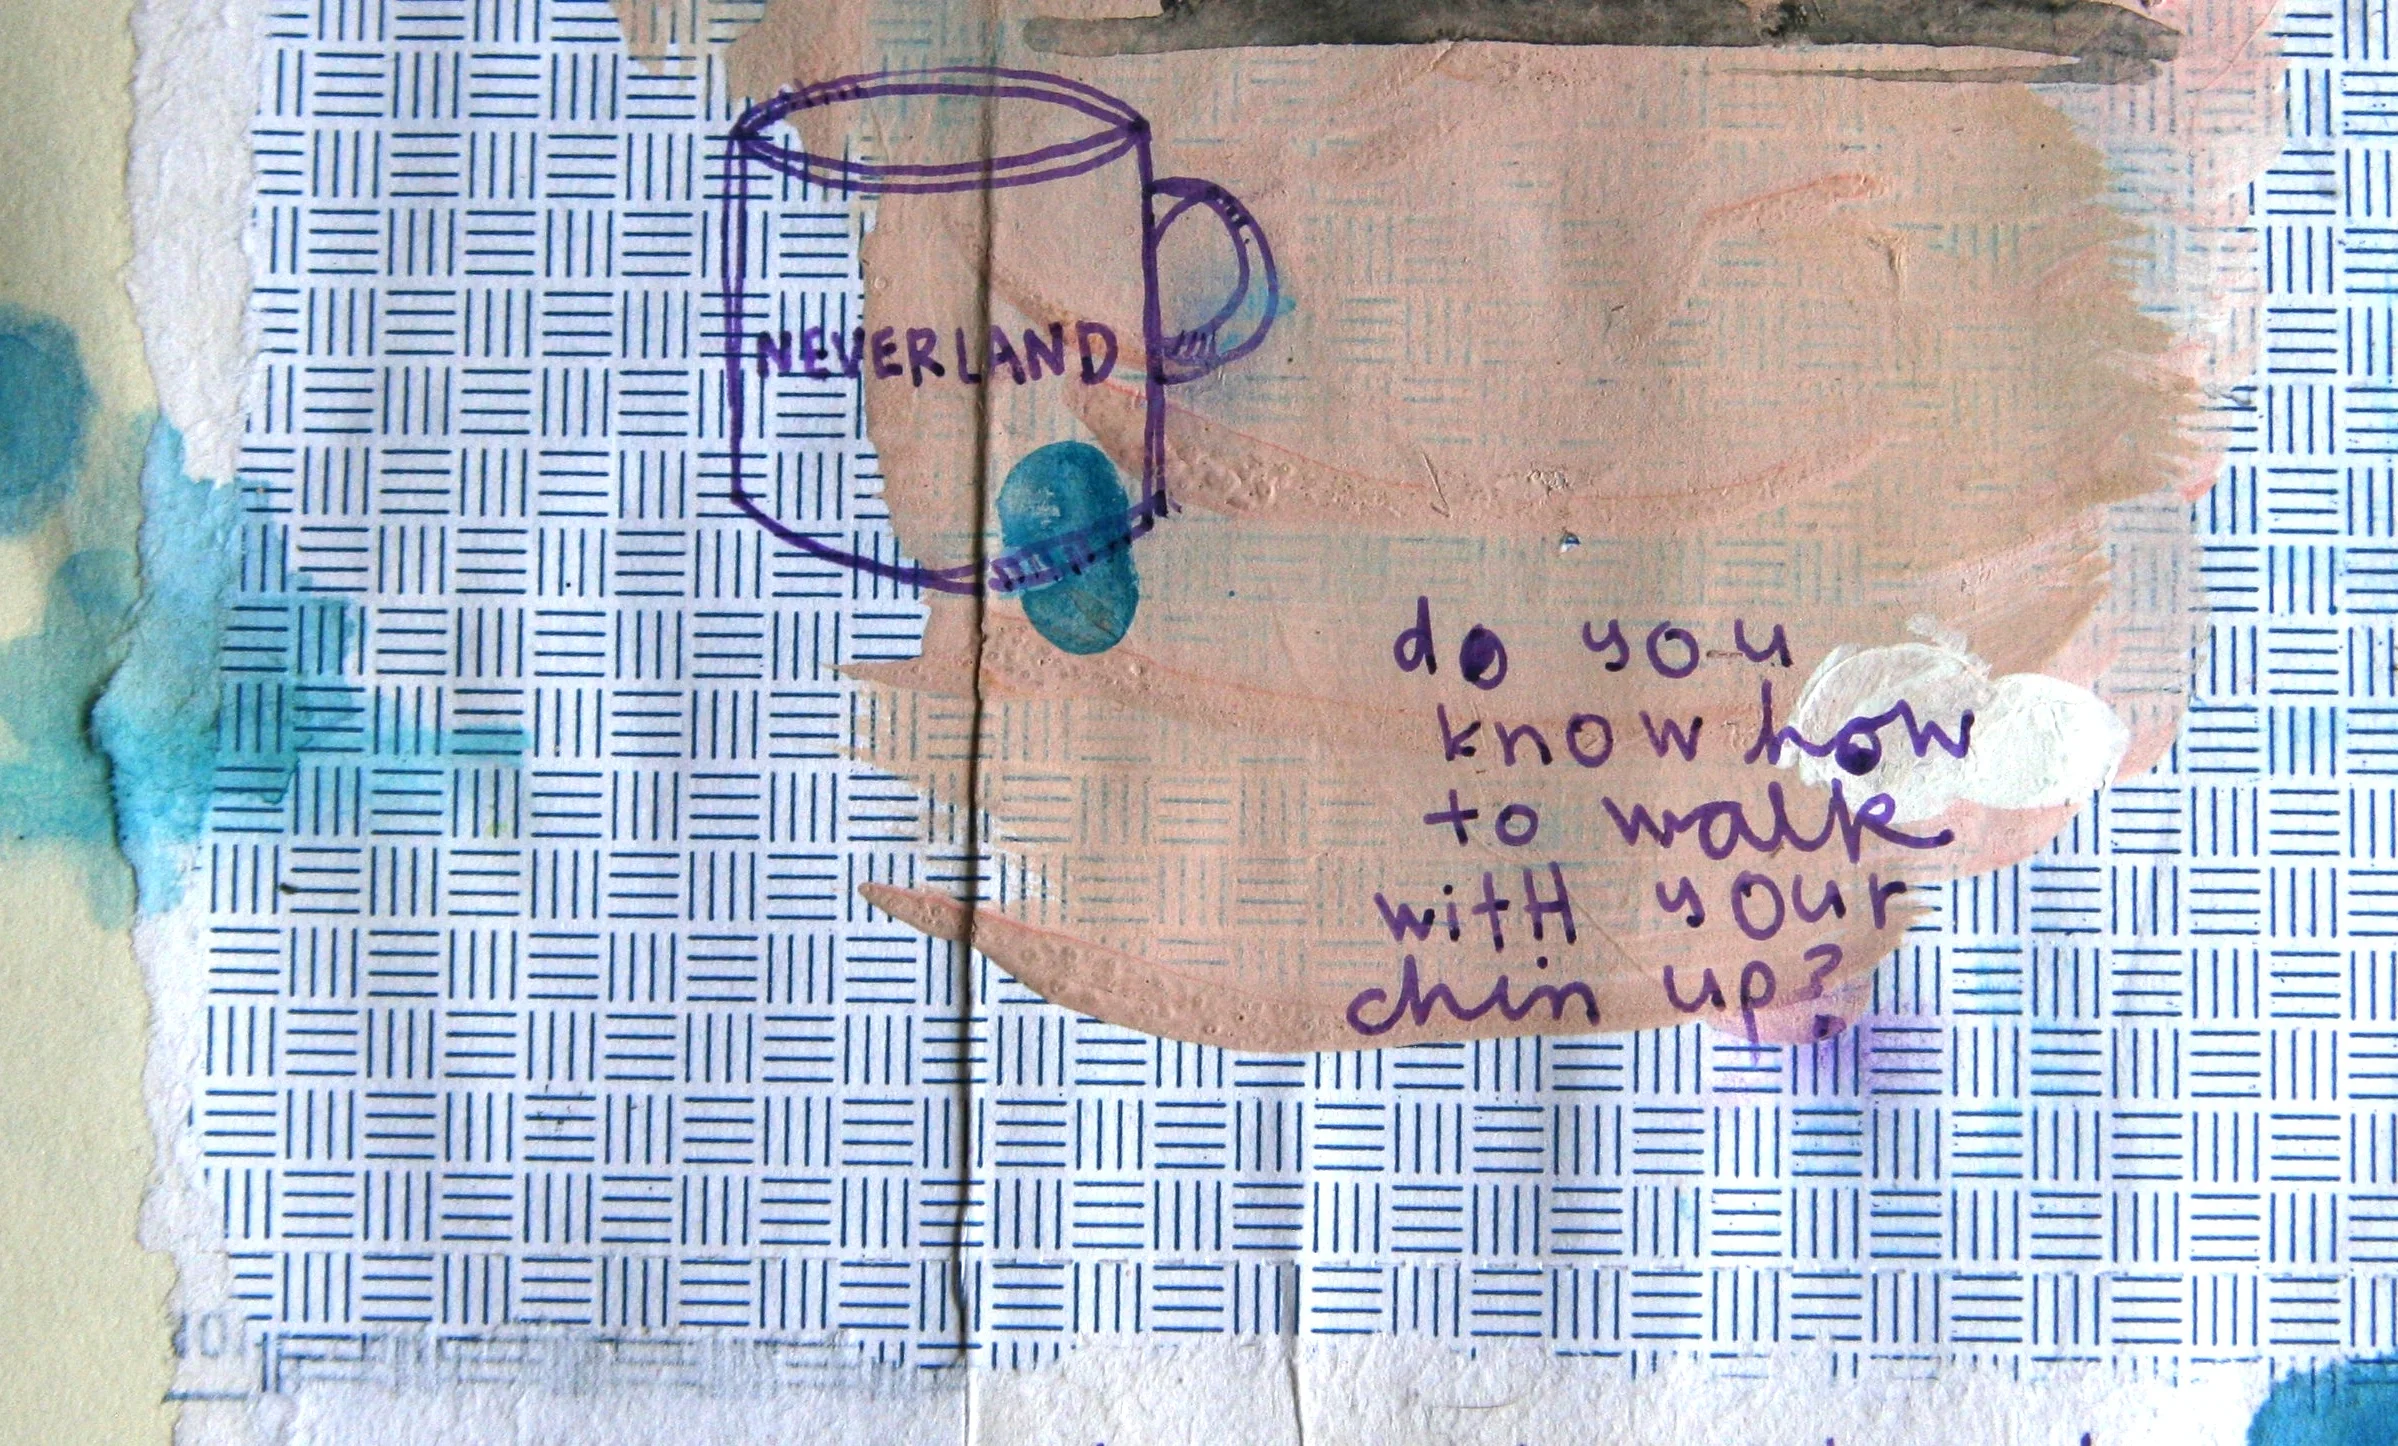 NEVERLAND
do you
know how
to walk
witH your
chin up?